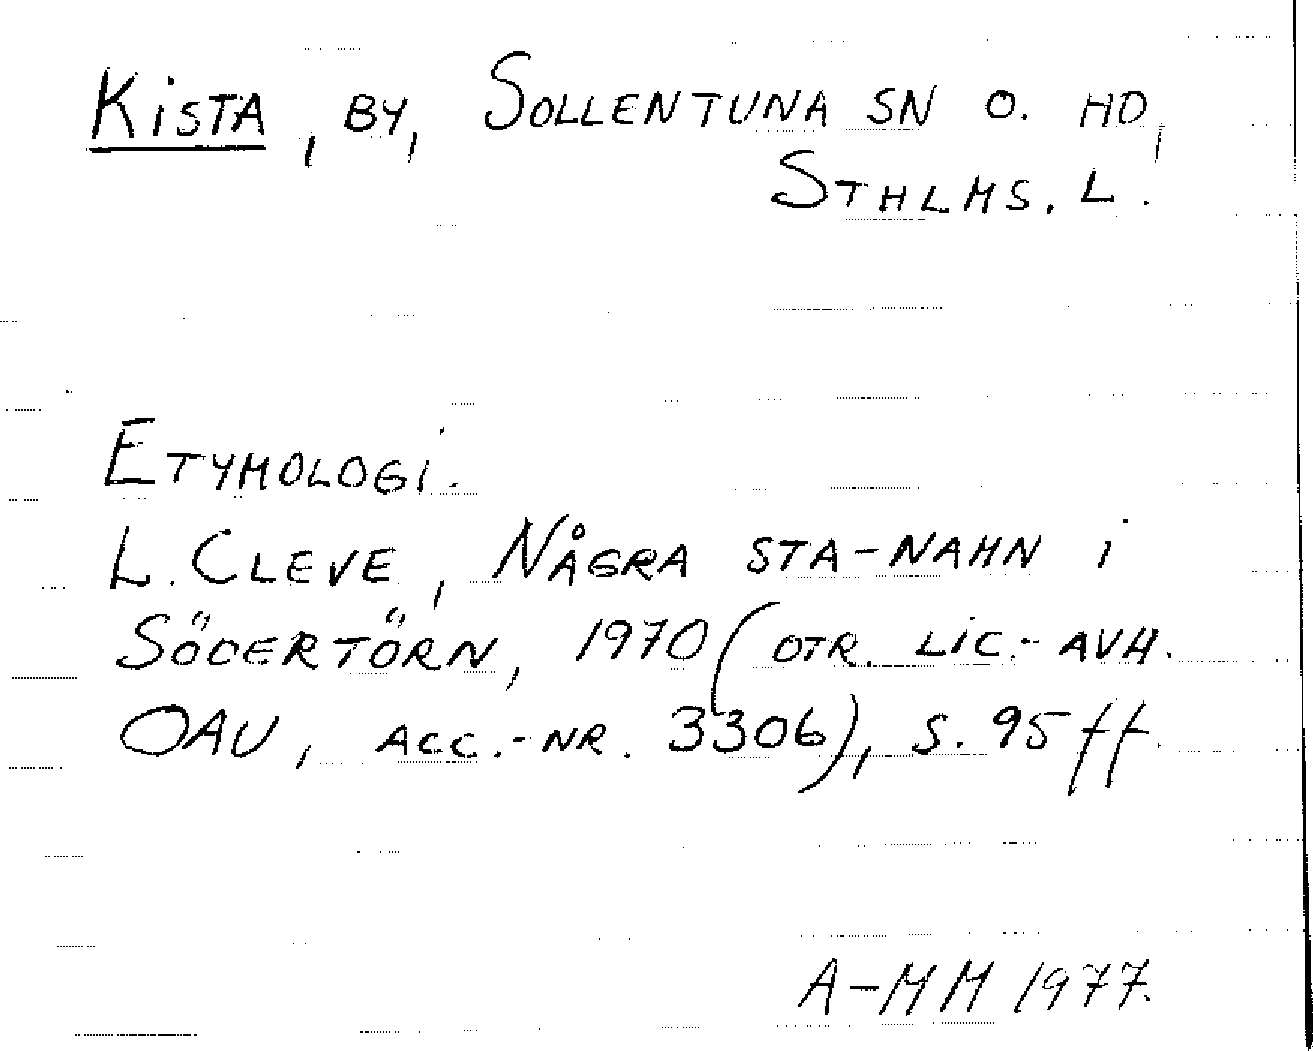 KiSTA, BY, SOLLENTUNA SN O. HD,
STHLMS. L.
ETYMOLOGi.
L. CLEVE, NÅGRA STA-NAMN i
SÖDERTÖRN, 1970 (OTR. LiC.-AVH.
OAU, ACC.-NR. 3306), S. 95 ff.
A-MM 1977.